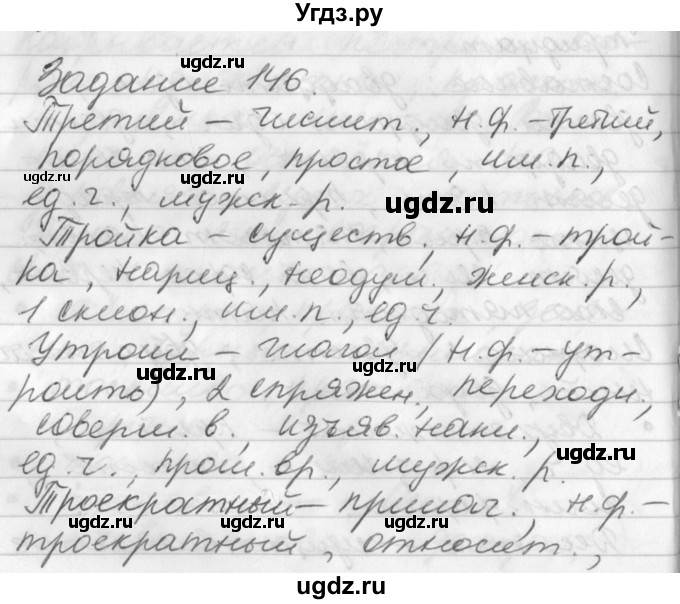 Угдз.ру
Задание 146.
Третий – числит., н.ф. – третий,
порядковое, простое, им.п.,
ед.ч., мужск. р.
Тройка – существ., н.ф. – трой-
ка, нариц., неодуш., женск. р.,
1 склон., им.п., ед.ч.
Утроил – глагол (н.ф. – ут-
роить), 2 спряжен., переходн.,
соверш. в., изъяв. накл.,
ед.ч., прош. вр., мужск. р.
Троекратный – прилаг., н.ф. –
троекратный, относит.,
ugdz.ru
ugdz.ru
ugdz.ru
ugdz.ru
ugdz.ru
ugdz.ru
ugdz.ru
ugdz.ru
ugdz.ru
ugdz.ru
ugdz.ru
ugdz.ru